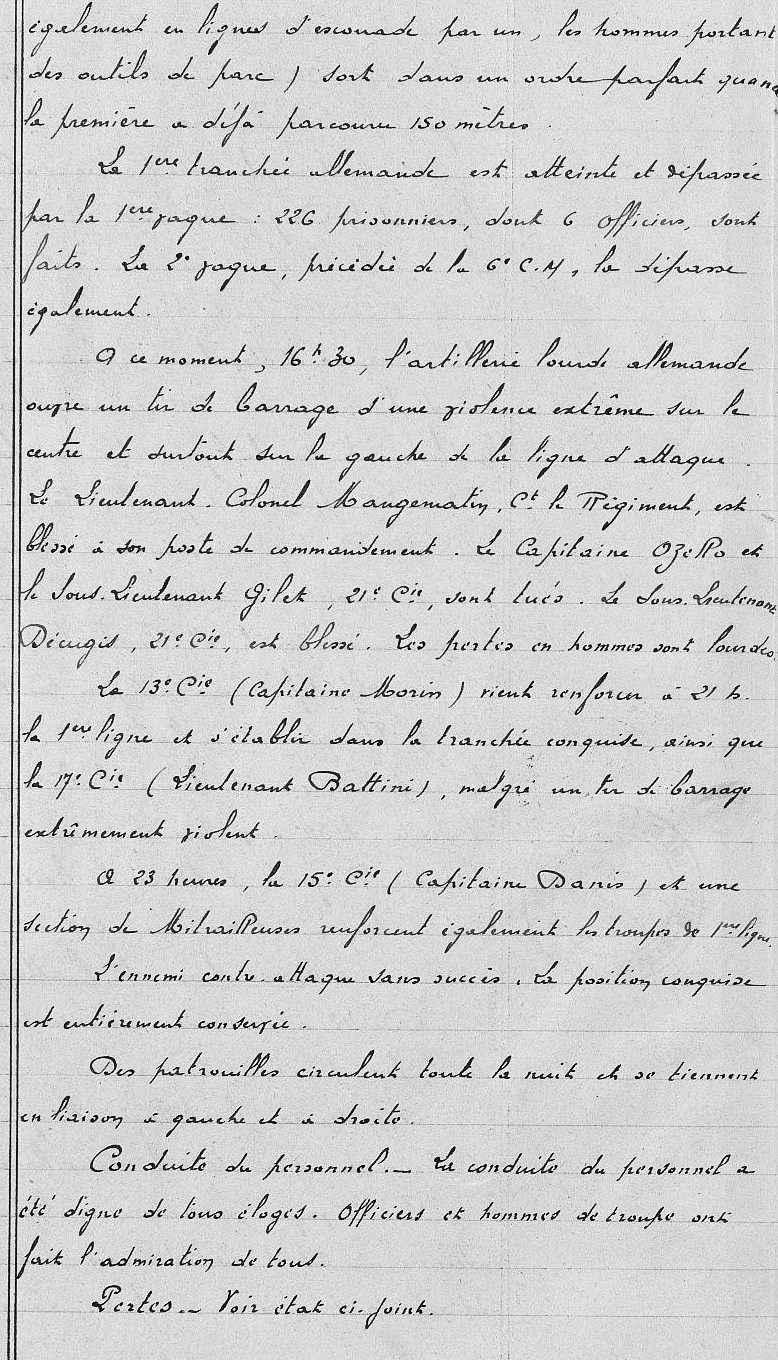 également en lignes d'escouade par un, les hommes portant
des outils de parc) sort dans un ordre parfait quand
la première a déjà parcouru 150 mètres.
La 1ère tranchée allemande est atteinte et dépassée
par la 1ère vague : 226 prisonniers, dont 6 officiers, sont
faits. La 2e vague, précédée de la 6e C.M, la dépasse
également.
A ce moment, 16h30, l'artillerie lourde allemande
ouvre un tir de barrage d'une violence extrême sur le
centre et surtout sur la gauche de la ligne d'attaque.
Le Lieutenant-Colonel Mangematin, Ct le Régiment, est
blessé à son poste de commandement. Le Capitaine Ozello et
le Sous-Lieutenant Gilet, 21e Cie, sont tués. Le Sous-Lieutenant
Décugis, 21e Cie, est blessé. Les pertes en hommes sont lourdes.
La 13e Cie (Capitaine Morin) vient renforcer à 21 h.
la 1ère ligne et s'établir dans la tranchée conquise, ainsi que
la 17e Cie (Lieutenant Battini), malgré un tir de barrage
extrêmement violent.
A 23 heures, la 15e Cie (Capitaine Danis) et une
section de Mitrailleuses renforcent également les troupes de 1ère ligne.
L'ennemi contre-attaque sans succès. La position conquise
est entièrement conservée.
Des patrouilles circulent toute la nuit et se tiennent
en liaison à gauche et à droite.
Conduite du personnel._ La conduite du personnel a
été digne de tous éloges. Officiers et hommes de troupe ont
fait l'admiration de tous.
Pertes._ Voir état ci-joint.